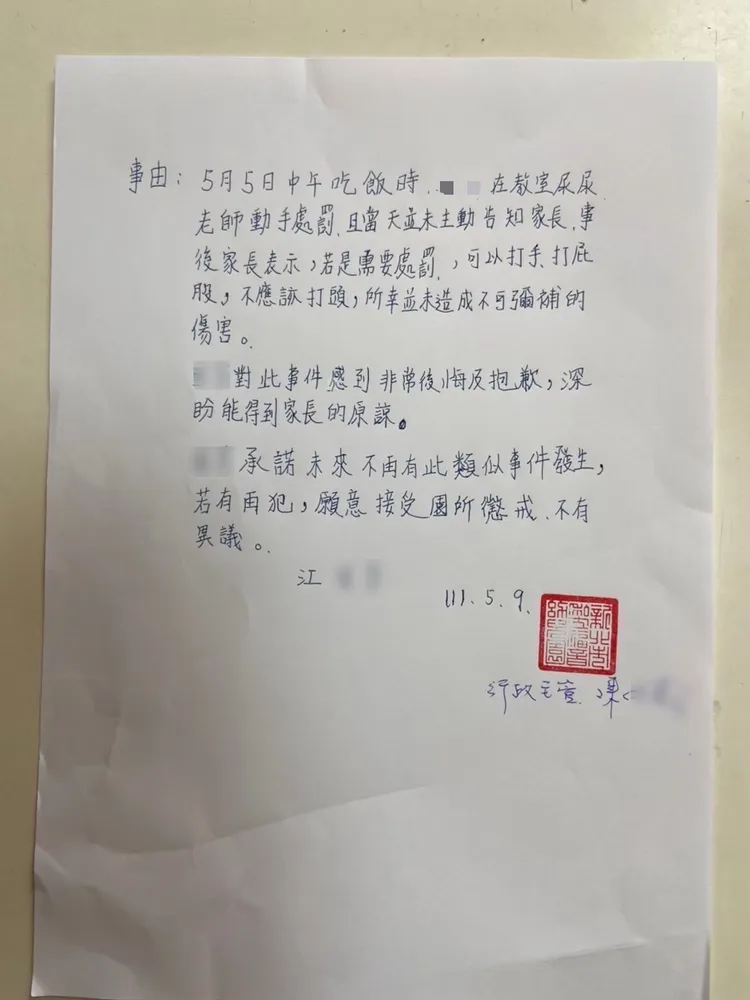 事由：5月5日中午吃飯時 在教室尿尿
老師動手處罰，且當天並未主動告知家長，事
後家長表示，若是需要處罰，可以打手、打屁
股，不應該打頭，所幸並未造成不可彌補的
傷害。
對此事件感到非常後悔及抱歉，深
盼能得到家長的原諒。
承諾未來不再有此類似事件發生，
若有再犯，願意接受園所懲戒、不有
異議。
江
111.5.9.
新北市
行政主管